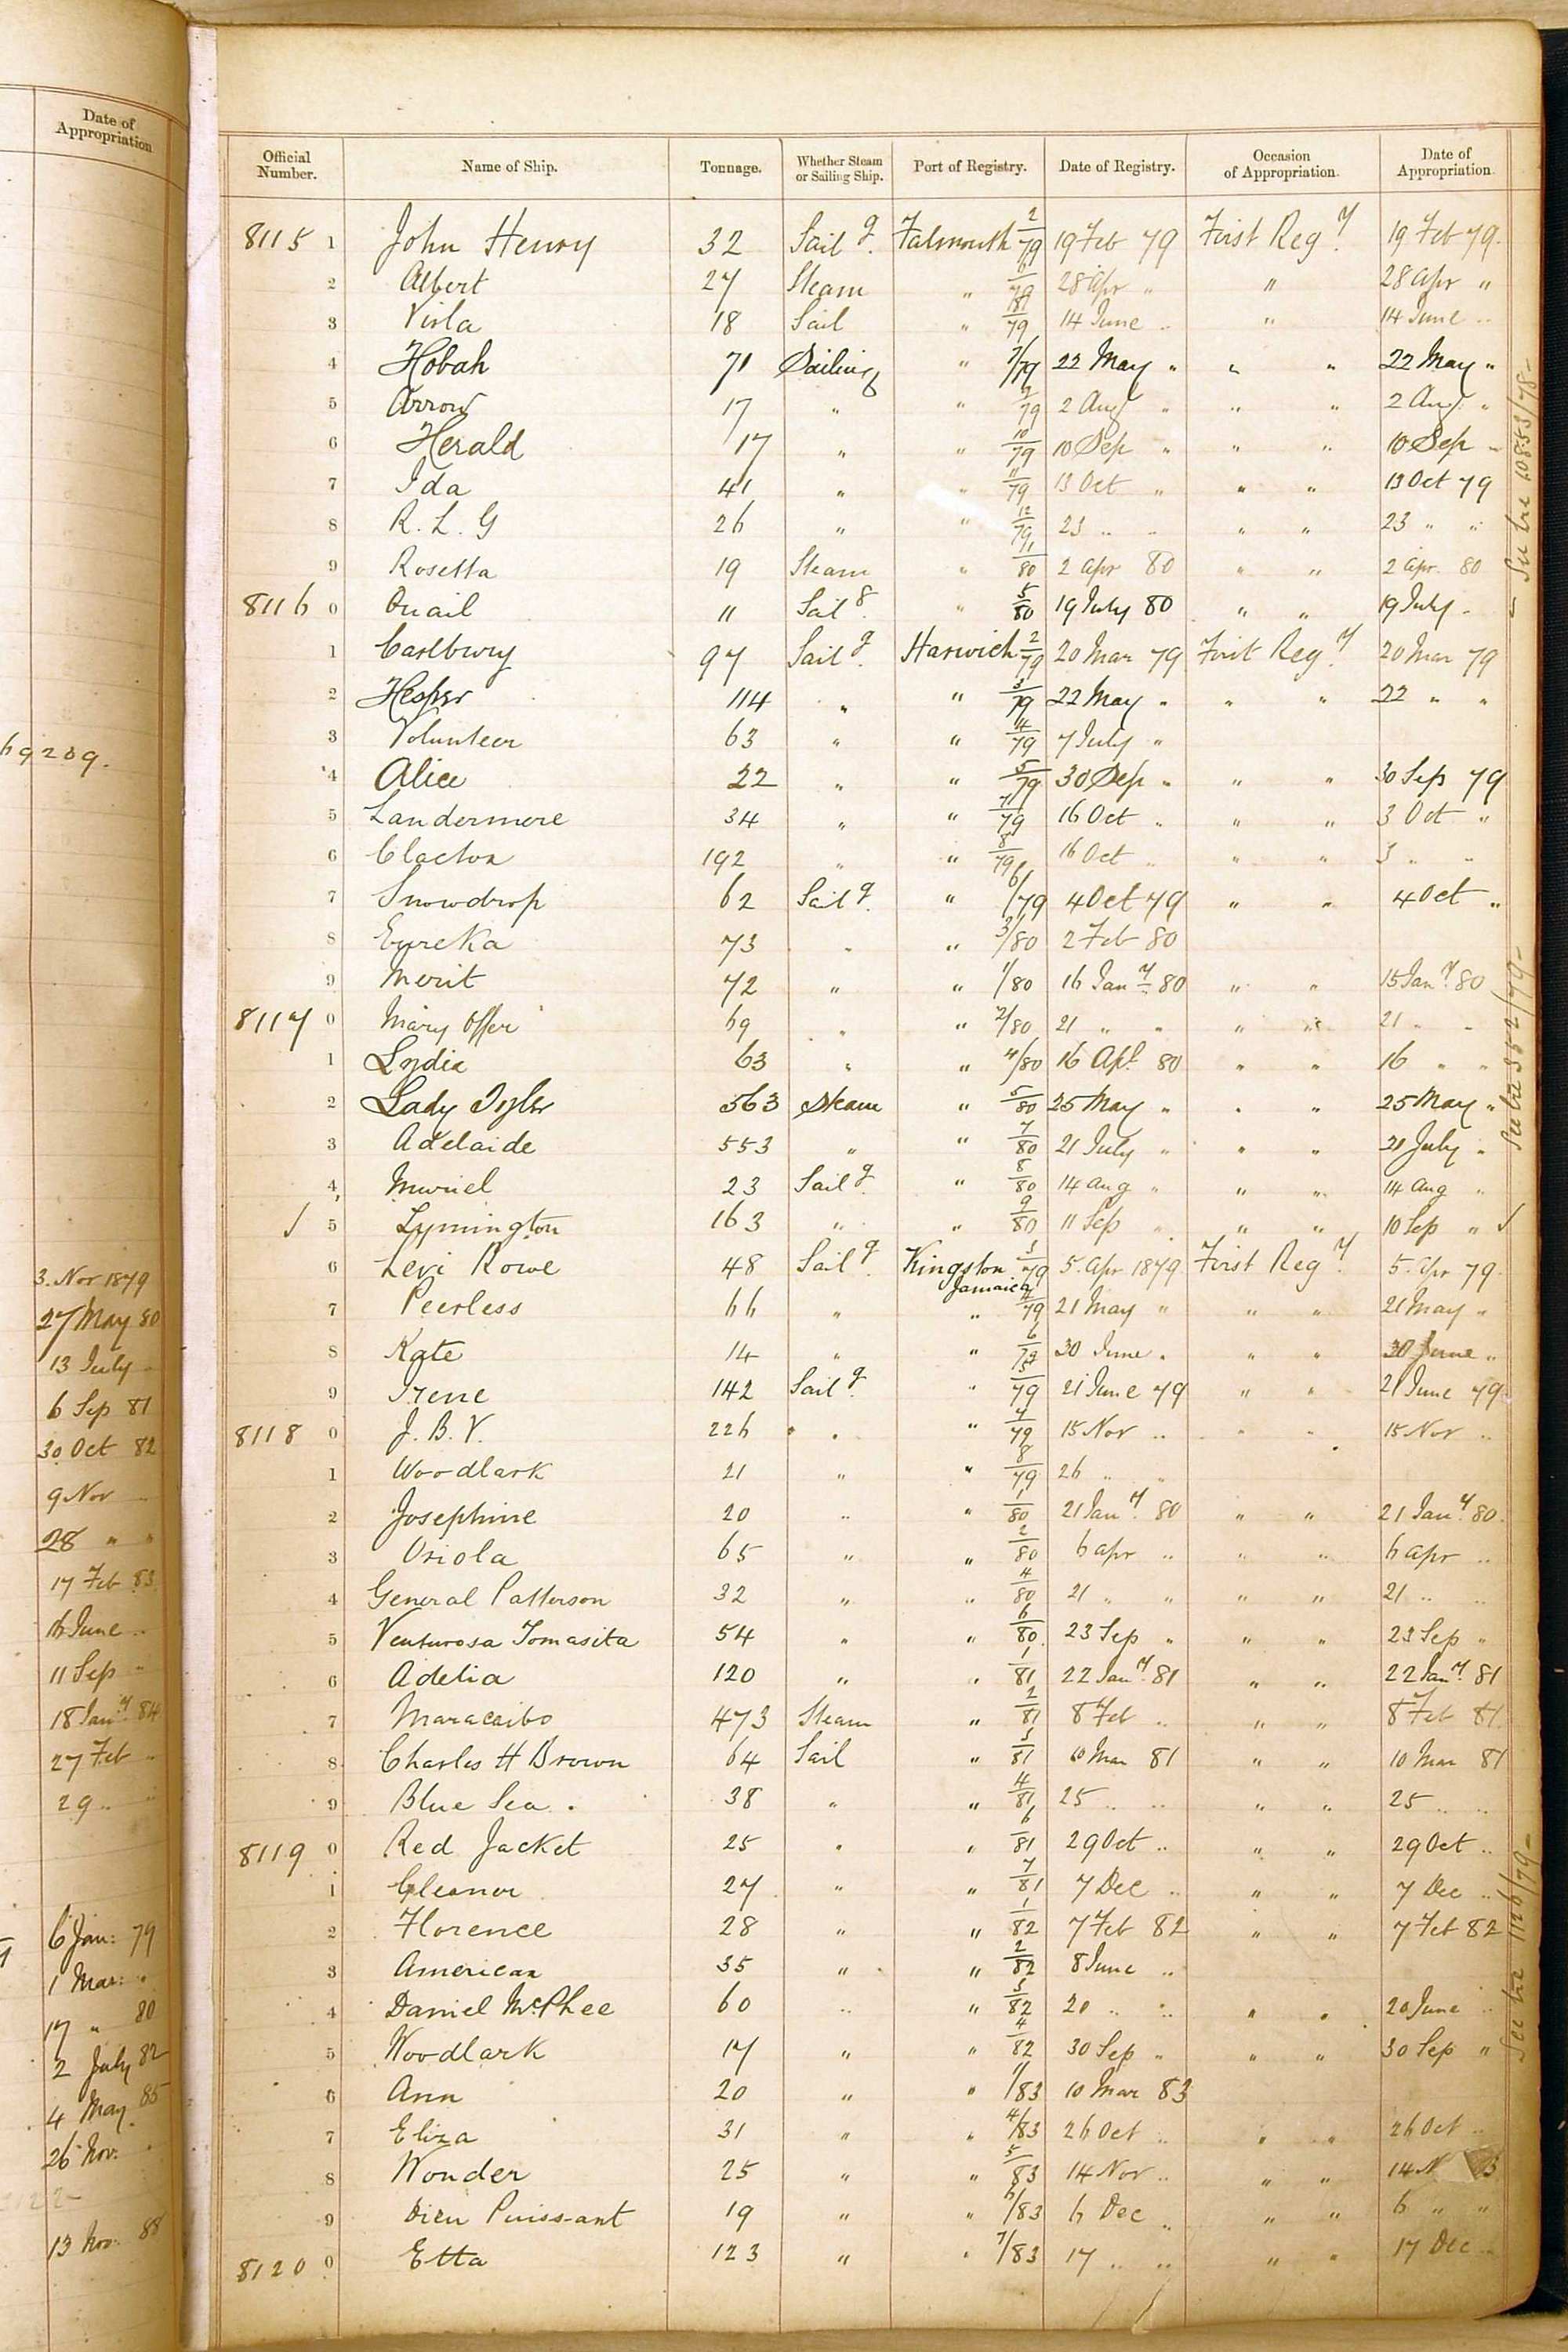 Date of
Appropriation
69209.
3. Nov 1879
27 May 80
13 July
6 Sep 81
30 Oct 82
9 Nov
28 " "
17 Feb 83
16 June ..
11 Sep
18 Jany. 84
27 Feb
29 ..
6 Jan: 79
1 Mar: "
17 " 80
2 July 82
4 May 85
26 Nov.
13 Nov. 88
Official Number. Name of Ship. Tonnage. Whether Steam or Sailing Ship. Port of Registry. Date of Registry. Occasion of Appropriation. Date of Appropriation.
8115 1 John Henry 32 Sailg. Falmouth 2/79 19 Feb 79 First Regy. 19 Feb 79.
2 Albert 27 Steam " 6/79 28 Apr " " 28 Apr "
3 Viola 18 Sail " 79 14 June .. " 14 June ..
4 Hobah 71 Sailing " 7/79 22 May " " " 22 May "
5 Arrow 17 " " 79 2 Aug " " " 2 Aug "
6 Herald 17 " " 10/79 10 Sep " " " 10 Sep "
7 Ida 41 " " 11/79 13 Oct " " " 13 Oct 79
8 R. L. G 26 " " 12/79 23 " " " " 23 " "
9 Rosetta 19 Steam " 80 2 Apr 80 " " 2 Apr. 80
8116 0 Quail 11 Sailg. " 5/80 19 July 80 " " 19 July "
1 Carlbury 97 Sailg. Harwich 2/79 20 Mar 79 First Regy. 20 Mar 79
2 Hesper 114 " " 3/79 22 May " " " 22 " "
3 Volunteer 63 " " 4/79 7 July "
4 Alice 22 " " 5/79 30 Sep " " " 30 Sep 79
5 Landermere 34 " " 7/79 16 Oct " " " 3 Oct "
6 Clacton 192 " " 8/79 16 Oct " " " 3 " "
7 Snowdrop 62 Sailg. " 6/79 4 Oct 79 " " 4 Oct "
8 Eureka 73 " " 3/80 2 Feb 80
9 Merit 72 " " 1/80 16 Jany 80 " " 15 Jany. 80
8117 0 Mary Offer 69 " " 2/80 21 " " " " 21 " "
1 Lydia 63 " " 4/80 16 Apl. 80 " " 16 " "
2 Lady Tyler 563 Steam " 5/80 25 May " " " 25 May "
3 Adelaide 553 " " 7/80 21 July " " " 21 July "
4 Muriel 23 Sailg. " 8/80 14 Aug " " " 14 Aug "
✓ 5 Lymington 163 " " 9/80 11 Sep " " " 10 Sep " ✓
6 Levi Rowe 48 Sailg. Kingston Jamaica 3/79 5. Apr 1879 First Regy. 5. Apr 79.
7 Peerless 66 " " 4/79 21 May " " " 21 May "
8 Kate 14 " " 6/79 30 June " " " 30 June "
9 Irene 142 Sailg. " 5/79 21 June 79 " " 21 June 79
8118 0 J. B. V. 226 " " 7/79 15 Nov .. " " 15 Nov ..
1 Woodlark 21 " " 8/79 26 " "
2 Josephine 20 " " 1/80 21 Jany. 80 " " 21 Jany. 80.
3 Oriola 65 " " 2/80 6 Apr .. " " 6 Apr ..
4 General Patterson 32 " " 4/80 21 " " " " 21 " "
5 Venturosa Tomasita 54 " " 6/80 23 Sep " " " 23 Sep "
6 Adelia 120 " " 1/81 22 Jany. 81 " " 22 Jany. 81
7 Maracaibo 473 Steam " 2/81 8 Feb .. " " 8 Feb 81
8 Charles H Brown 64 Sail " 3/81 10 Mar 81 " " 10 Mar 81
9 Blue Sea. 38 " " 4/81 25 " " " " 25 " "
8119 0 Red Jacket 25 " " 6/81 29 Oct .. " " 29 Oct ..
1 Eleanor 27 " " 7/81 7 Dec .. " " 7 Dec ..
2 Florence 28 " " 1/82 7 Feb 82 " " 7 Feb 82
3 American 35 " " 2/82 8 June ..
4 Daniel McPhee 60 " " 3/82 20 " " " " 20 June ..
5 Woodlark 17 " " 4/82 30 Sep " " " 30 Sep "
6 Ann 20 " " 1/83 10 Mar 83
7 Eliza 31 " " 4/83 26 Oct .. " " 26 Oct ..
8 Wonder 25 " " 5/83 14 Nov .. " " 14 N
9 Dieu Puissant 19 " " 6/83 6 Dec " " " 6 " "
8120 0 Etta 123 " " 7/83 17 " " " " 17 Dec ..
See tre 10853/78-
See tre 1126/79-